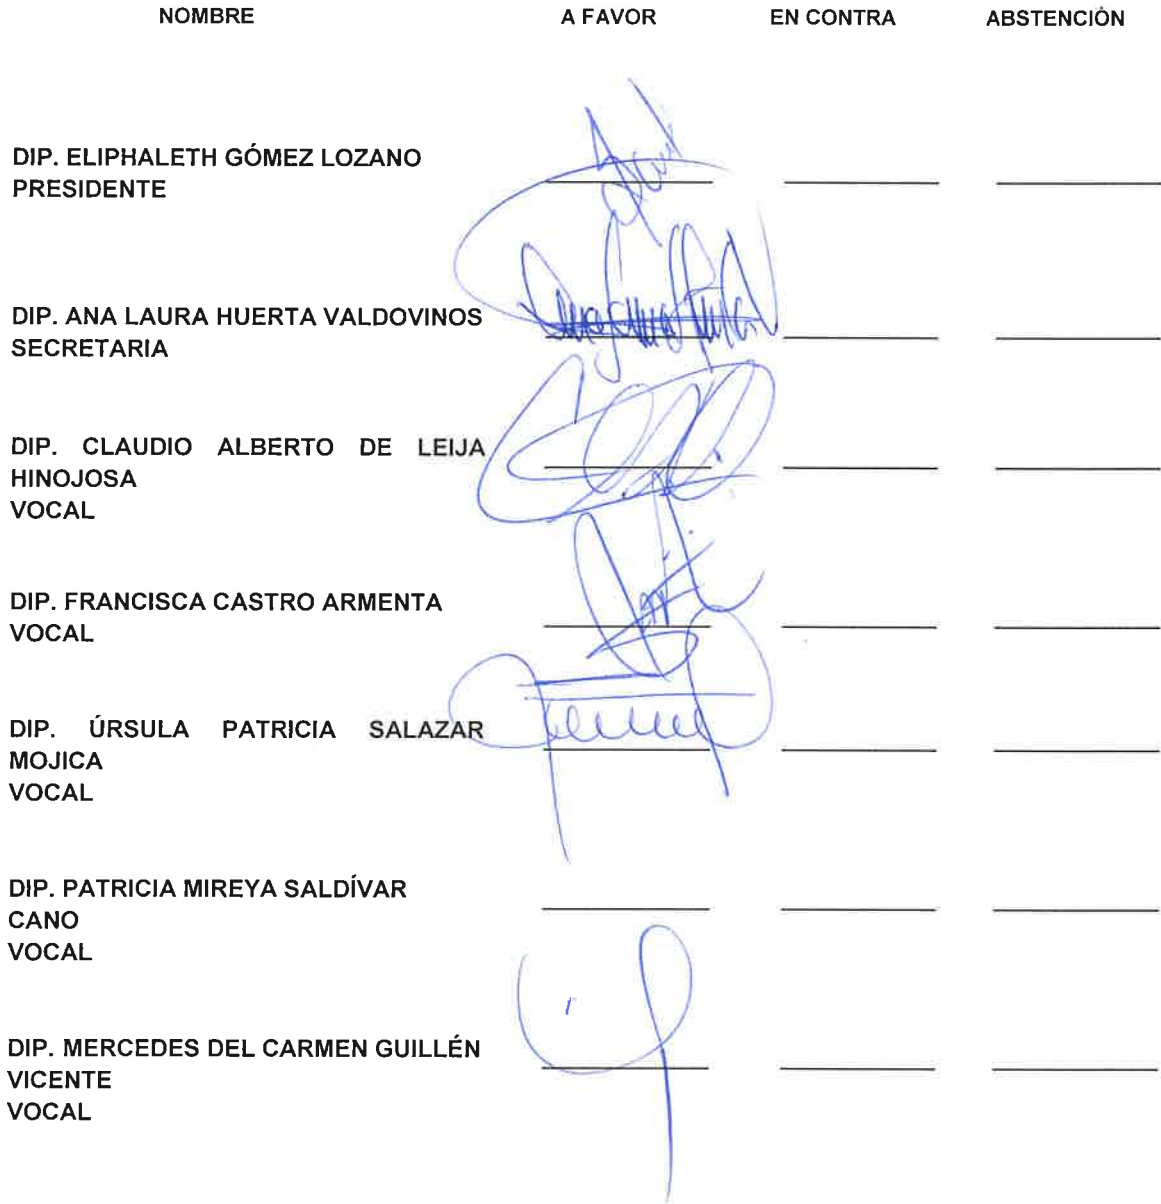 NOMBRE A FAVOR EN CONTRA ABSTENCIÓN
DIP. ELIPHALETH GÓMEZ LOZANO
PRESIDENTE
DIP. ANA LAURA HUERTA VALDOVINOS
SECRETARIA
DIP. CLAUDIO ALBERTO DE LEIJA
HINOJOSA
VOCAL
DIP. FRANCISCA CASTRO ARMENTA
VOCAL
DIP. ÚRSULA PATRICIA SALAZAR
MOJICA
VOCAL
DIP. PATRICIA MIREYA SALDÍVAR
CANO
VOCAL
DIP. MERCEDES DEL CARMEN GUILLÉN
VICENTE
VOCAL